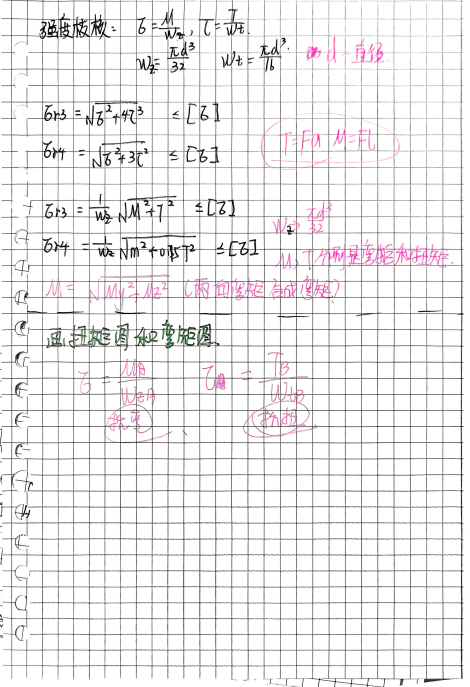 强度校核: σ=M/Wz, τ=T/Wt.
Wz=πd³/32 Wt=πd³/16 d-直径
σr3=√(σ²+4τ³) ≤[σ]
σr4=√(σ²+3τ²) ≤[σ]
T=Fa M=FL
σr3=1/Wz √(M²+T²) ≤[σ] Wz=πd³/32
σr4=1/Wz √(m²+0.75T²) ≤[σ] M,T分别是弯矩和扭矩.
M=√(My²+Mz²) (两面弯矩合成弯矩)
画扭矩图和弯矩图.
σ=MB/WzB τ=TB/WtB
抗弯 抗扭